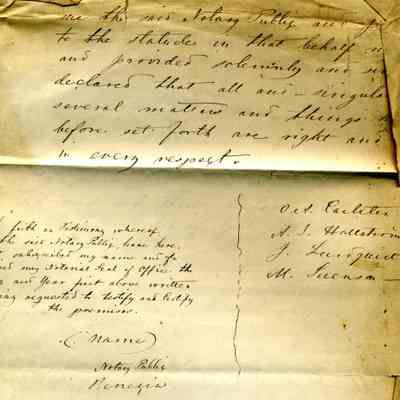 me the said Notary Public and
to the statutes in that behalf
and provided solemnly and
declared that all and singular
several matters and things
before set forth are right and
in every respect.
faith and Testimony whereof
the said Notary Public have here
subscribed my name and
my Notarial Seal of Office the
and Year just above written
requested to testify and certify
the premises.
(Name)
Notary Public
Benegia
O. A.
A. J. Hallstrom
J. Lundquist
M. Swenson